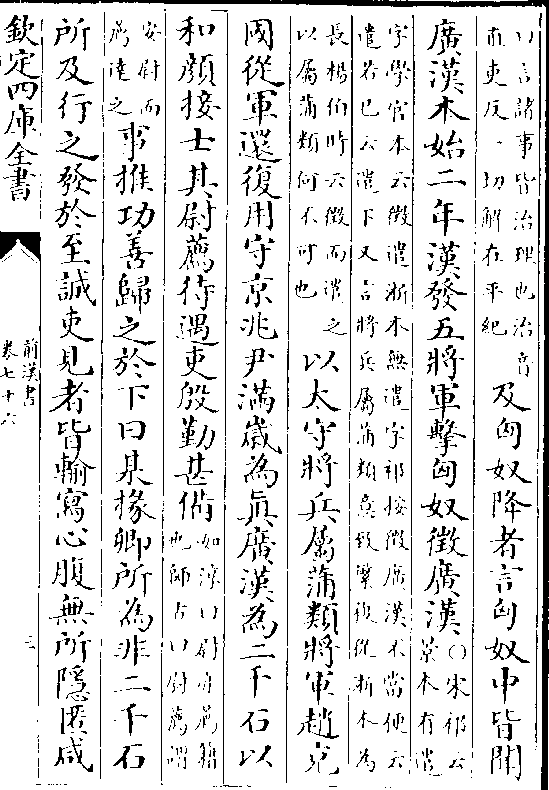 曰言諸事皆治理也治音
直吏反一切解在平紀
及匈奴降者言匈奴中皆聞
廣漢本始二年漢發五將軍擊匈奴徵廣漢
○宋祁云
景本有遣
字學官本云徵遣浙本無遣字祁按徵廣漢不當便云
遣若已云遣下又言將兵屬蒲類意致繁複從浙本為
長楊伯時云徵而遣之
以屬蒲類何不可也
以太守將兵屬蒲類將軍趙充
國從軍還復用守京兆尹滿歲為真廣漢為二千石以
和顏接士其尉薦待遇吏殷勤甚備
如淳曰尉亦薦籍
也師古曰尉薦謂
安尉而
薦達之
事推功善歸之於下曰某掾卿所為非二千石
所及行之發於至誠吏見者皆輸寫心腹無所隱匿咸
欽定四庫全書
前漢書
卷七十六
三